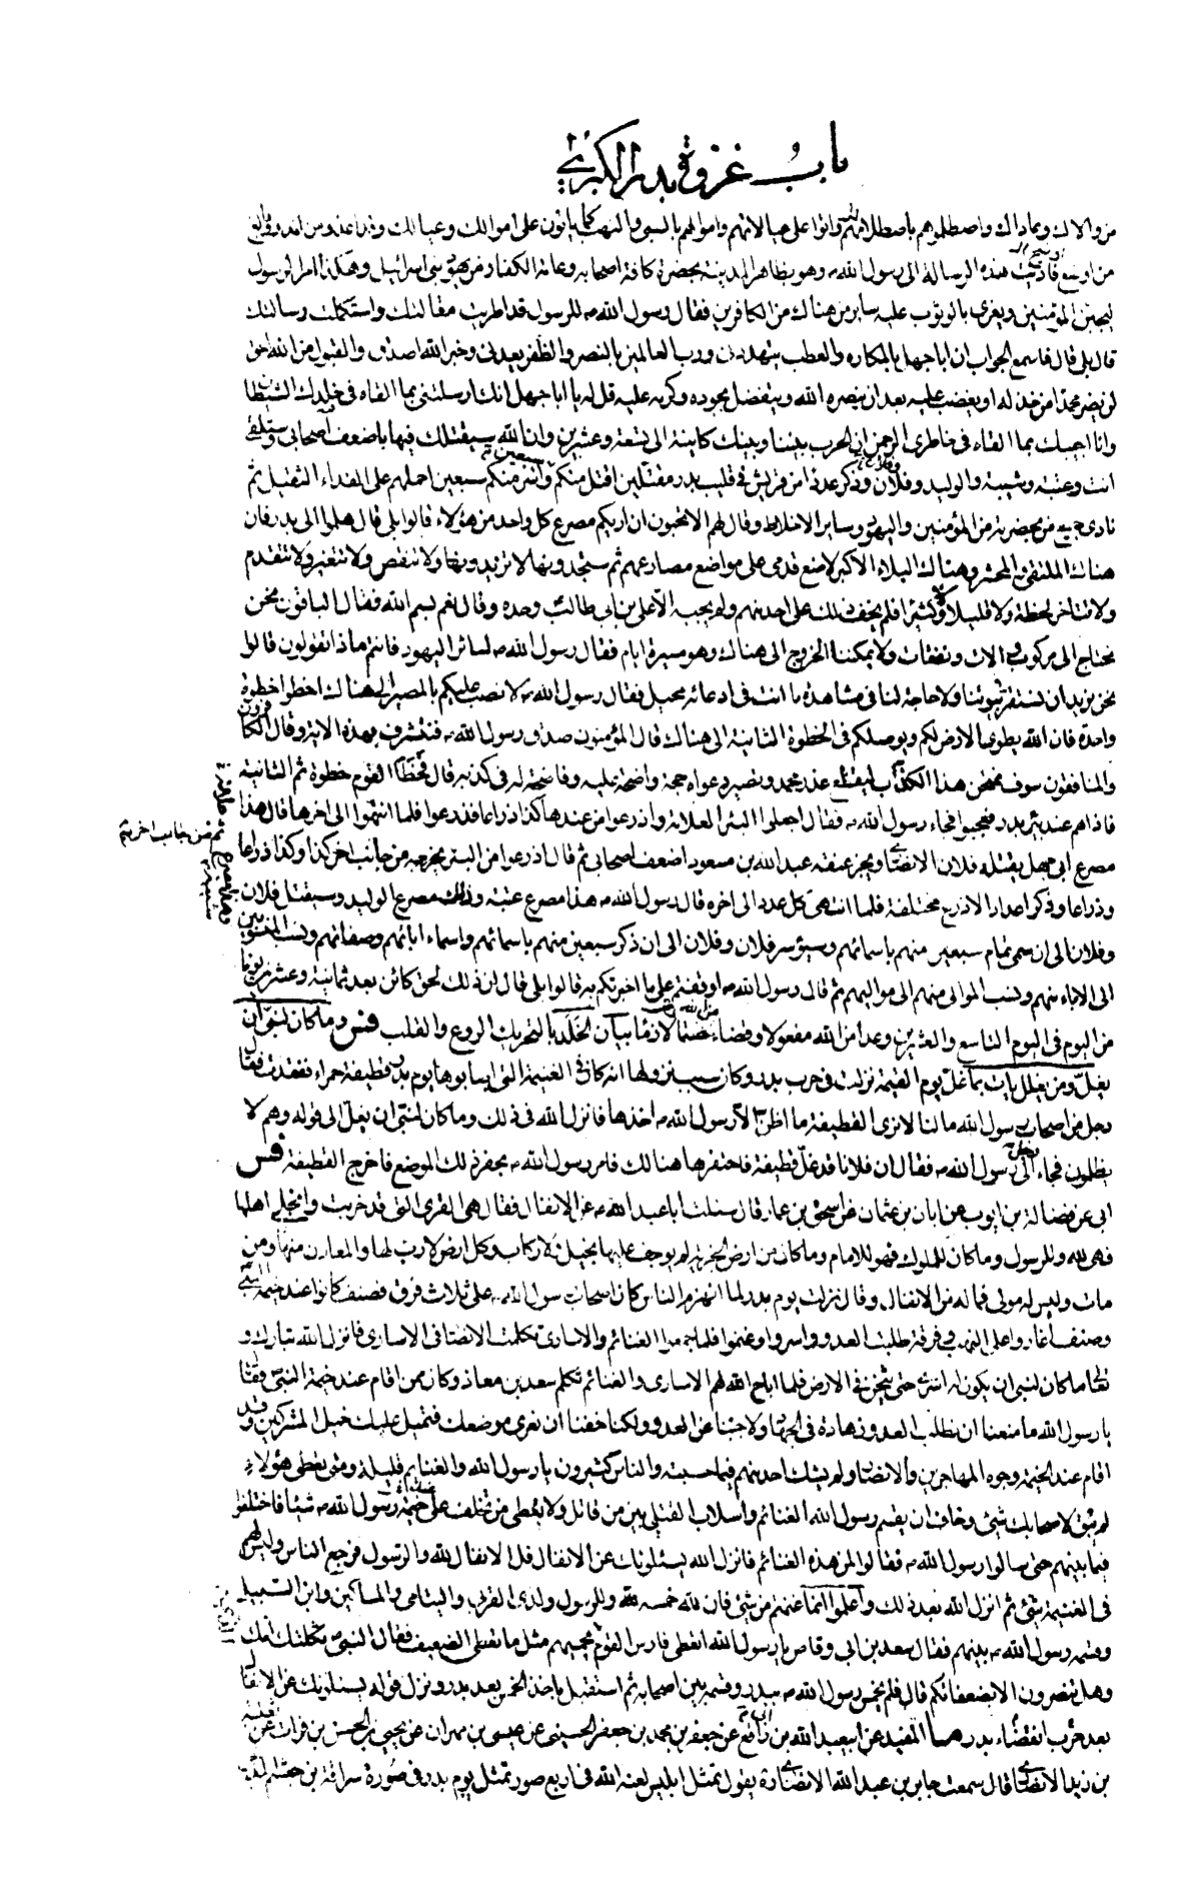 باب غزوة بدر الكبرى
من والاك وعاداك واصطلموهم باصطلامهم لك واتوا على عيالاتهم واموالهم بالسبي والنهب كما ياتون على اموالك وعيالك وقد اعذر من انذر وبالغ
من اوضح فاديت هذه الرسالة الى رسول الله ص وهو بظاهر المدينة بحضرة كافة اصحابه وعامة الكفار من يهود بني اسرائيل وهكذا امر الرسول
ليجبن المؤمنين ويغري بالوثوب عليه ساير من هناك من الكافرين فقال رسول الله ص للرسول قد اطريت مقالتك واستكملت رسالتك
قال بلى قال فاسمع الجواب ان ابا جهل بالمكاره والعطب يتهددني ورب العالمين بالنصر والظفر يعدني وخبر الله اصدق والقبول من الله احق
لن يضر محمدا من خذله او يغضب عليه بعد ان ينصره الله ويتفضل بجوده وكرمه عليه قل له يا ابا جهل انك ارسلتني بما القاه في خلدك الشيطان
وانا اجيبك بما القاه في خاطري الرحمن ان الحرب بيننا وبينك كاينة الى تسعة وعشرين وان الله سيقتلك فيها باضعف اصحابي وستلقى
انت وعتبة وشيبة والوليد وفلان وفلان وذكر عددا من قريش في قليب بدر مقتلين اقتل منكم سبعين واسر منكم سبعين احملهم على الفداء الثقيل ثم
نادى جميع من بحضرته من المؤمنين واليهود وساير الاخلاط وقال لهم الا تحبون ان اريكم مصرع كل واحد من هؤلاء قالوا بلى قال هلموا الى بدر فان
هناك الملتقى والمحشر وهناك البلاء الاكبر لاضع قدمي على مواضع مصارعهم ثم ستجدونها لا تزيد ولا تنقص ولا تتغير ولا تتقدم
ولا تتاخر لحظة ولا قليلا ولا كثيرا فلم يخف ذلك على احد منهم ولم يجبه الا علي بن ابي طالب وحده وقال نعم بسم الله فقال الباقون نحن
نحتاج الى مركوب والات ونفقات ولا يمكننا الخروج الى هناك وهو مسيرة ايام فقال رسول الله ص لسائر اليهود فانتم ماذا تقولون قالوا
نحن نريد ان نستقر في بيوتنا ولا حاجة لنا في مشاهدة ما انت في ادعائه محيل فقال رسول الله ص لا نصب عليكم بالمصير الى هناك اخطوا خطوة
واحدة فان الله يطوي الارض لكم ويوصلكم في الخطوة الثانية الى هناك قال المؤمنون صدق رسول الله ص فنتشرف بهذه الاية وقال الكافرون
والمنافقون سوف نمتحن هذا الكذاب ليقطع عذر محمد وتصير دعواه حجة واضحة عليه وفاضحة له في كذبه قال فخطا القوم خطوة ثم الثانية
فاذا هم عند بئر بدر فعجبوا فجاء رسول الله ص فقال اجعلوا البئر العلامة واذرعوا من عندها كذا ذراعا فذرعوا فلما انتهوا الى اخرها قال هذا
مصرع ابي جهل يقتله فلان الانصاري ويجز عنقه عبد الله بن مسعود اضعف اصحابي ثم قال اذرعوا من البئر من جانب اخر كذا وكذا ذراعا
وذراعا وذكر اعداد الاذرع مختلفة فلما انتهى كل عدد الى اخره قال رسول الله ص هذا مصرع عتبة وذلك مصرع الوليد وسيقتل فلان
ثم من جانب اخر ثم
وفلان الى ان سمى تمام سبعين منهم باسمائهم وسيؤسر فلان وفلان الى ان ذكر سبعين منهم باسمائهم واسماء ابائهم وصفاتهم ونسب المنسوبين
الى الاباء منهم ونسب الموالي منهم الى مواليهم ثم قال رسول الله ص اوقفتم على ما اخبرتكم به قالوا بلى قال ان ذلك لحق كائن بعد ثمانية وعشرين يوما
من اليوم في اليوم التاسع والعشرين وعدا من الله مفعولا وقضاء حتما لازما بيان الخلد بالتحريك الروع والقلب فس وما كان لنبي ان
يغل ومن يغلل يات بما غل يوم القيمة نزلت في حرب بدر وكان سبب نزولها انه كان في الغنيمة التي اصابوها يوم بدر قطيفة حمراء ففقدت فقال
رجل من اصحاب رسول الله ما لنا لا نرى القطيفة ما اظن الا رسول الله ص اخذها فانزل الله في ذلك وما كان لنبي ان يغل الى قوله وهم لا
يظلمون فجاء رجل الى رسول الله ص فقال ان فلانا قد غل قطيفة فاحتفرها هنالك فامر رسول الله ص بحفر ذلك الموضع فاخرج القطيفة فس
ابي عن فضالة بن ايوب عن ابان بن عثمان عن اسحق بن عمار قال سئلت ابا عبد الله ص عن الانفال فقال هي القرى التي قد خربت وانجلى اهلها
فهي لله وللرسول وما كان للملوك فهو للامام وما كان من ارض الجزية لم يوجف عليها بخيل ولا ركاب وكل ارض لا رب لها والمعادن منها ومن
مات وليس له مولى فماله من الانفال وقال نزلت يوم بدر لما انهزم الناس كان اصحاب رسول الله ص على ثلاث فرق فصنف كانوا عند خيمة النبي
وصنف اغاروا على النهب وفرقة طلبت العدو واسروا وغنموا فلما جمعوا الغنائم والاسارى تكلمت الانصار في الاسارى فانزل الله تبارك و
تعالى ما كان لنبي ان يكون له اسرى حتى يثخن في الارض فلما اباح الله لهم الاسارى والغنائم تكلم سعد بن معاذ وكان ممن اقام عند خيمة النبي فقال
يا رسول الله ما منعنا ان نطلب العدو زهادة في الجهاد ولا جبنا عن العدو ولكنا خفنا ان نعرى موضعك فتميل عليك خيل المشركين وقد
اقام عند الخيمة وجوه المهاجرين والانصار ولم يشك احد منهم فيما حسبته والناس كثيرون يا رسول الله والغنايم قليلة ومتى يعطى هؤلاء
لم يبق لاصحابك شيء وخاف ان يقسم رسول الله الغنائم واسلاب القتلى بين من قاتل ولا يعطى من تخلف على خيمة رسول الله ص شيئا فاختلفوا
فيما بينهم حتى سالوا رسول الله ص فقالوا لمن هذه الغنائم فانزل الله يسئلونك عن الانفال قل الانفال لله والرسول فرجع الناس وليس لهم
في الغنيمة شيء ثم انزل الله بعد ذلك واعلموا انما غنمتم من شيء فان لله خمسه وللرسول ولذي القربى واليتامى والمساكين وابن السبيل
وقسمه رسول الله ص بينهم فقال سعد بن ابي وقاص يا رسول الله اتعطي فارس القوم الذي يحميهم مثل ما تعطي الضعيف فقال النبي ص ثكلتك امك
وهل تنصرون الا بضعفائكم قال فلم يخمس رسول الله ص ببدر وقسمه بين اصحابه ثم استقبل باخذ الخمس بعد بدر ونزل قوله يسئلونك عن الانفال
بعد حرب انقضاء بدر ما المفيد عن عبيد الله بن ابي رافع عن جعفر بن محمد بن جعفر الحسيني عن عيسى بن مهران عن يحيى بن الحسن بن فرات عن ثعلبة
بن زيد الانصاري قال سمعت جابر بن عبد الله الانصاري ره يقول تمثل ابليس لعنه الله في اربع صور تمثل يوم بدر في صورة سراقة بن جعشم المدلجي